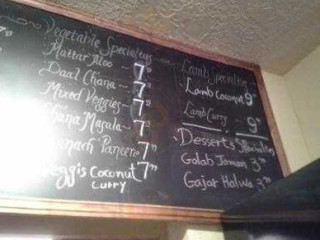 Vegetable Specialties
Mattar Aloo ~ 7
Daal Chana ~ 7
Mixed Veggies ~ 7
Chana Masala ~ 7
Spinach Paneere 7
Veggis Coconut 7
CURRY
Lamb Specialties
Lamb Coconut 9
Lamb Curry ~ 9
Desserts Specialties
Golab Jaman 3
Gajar Halwa 3